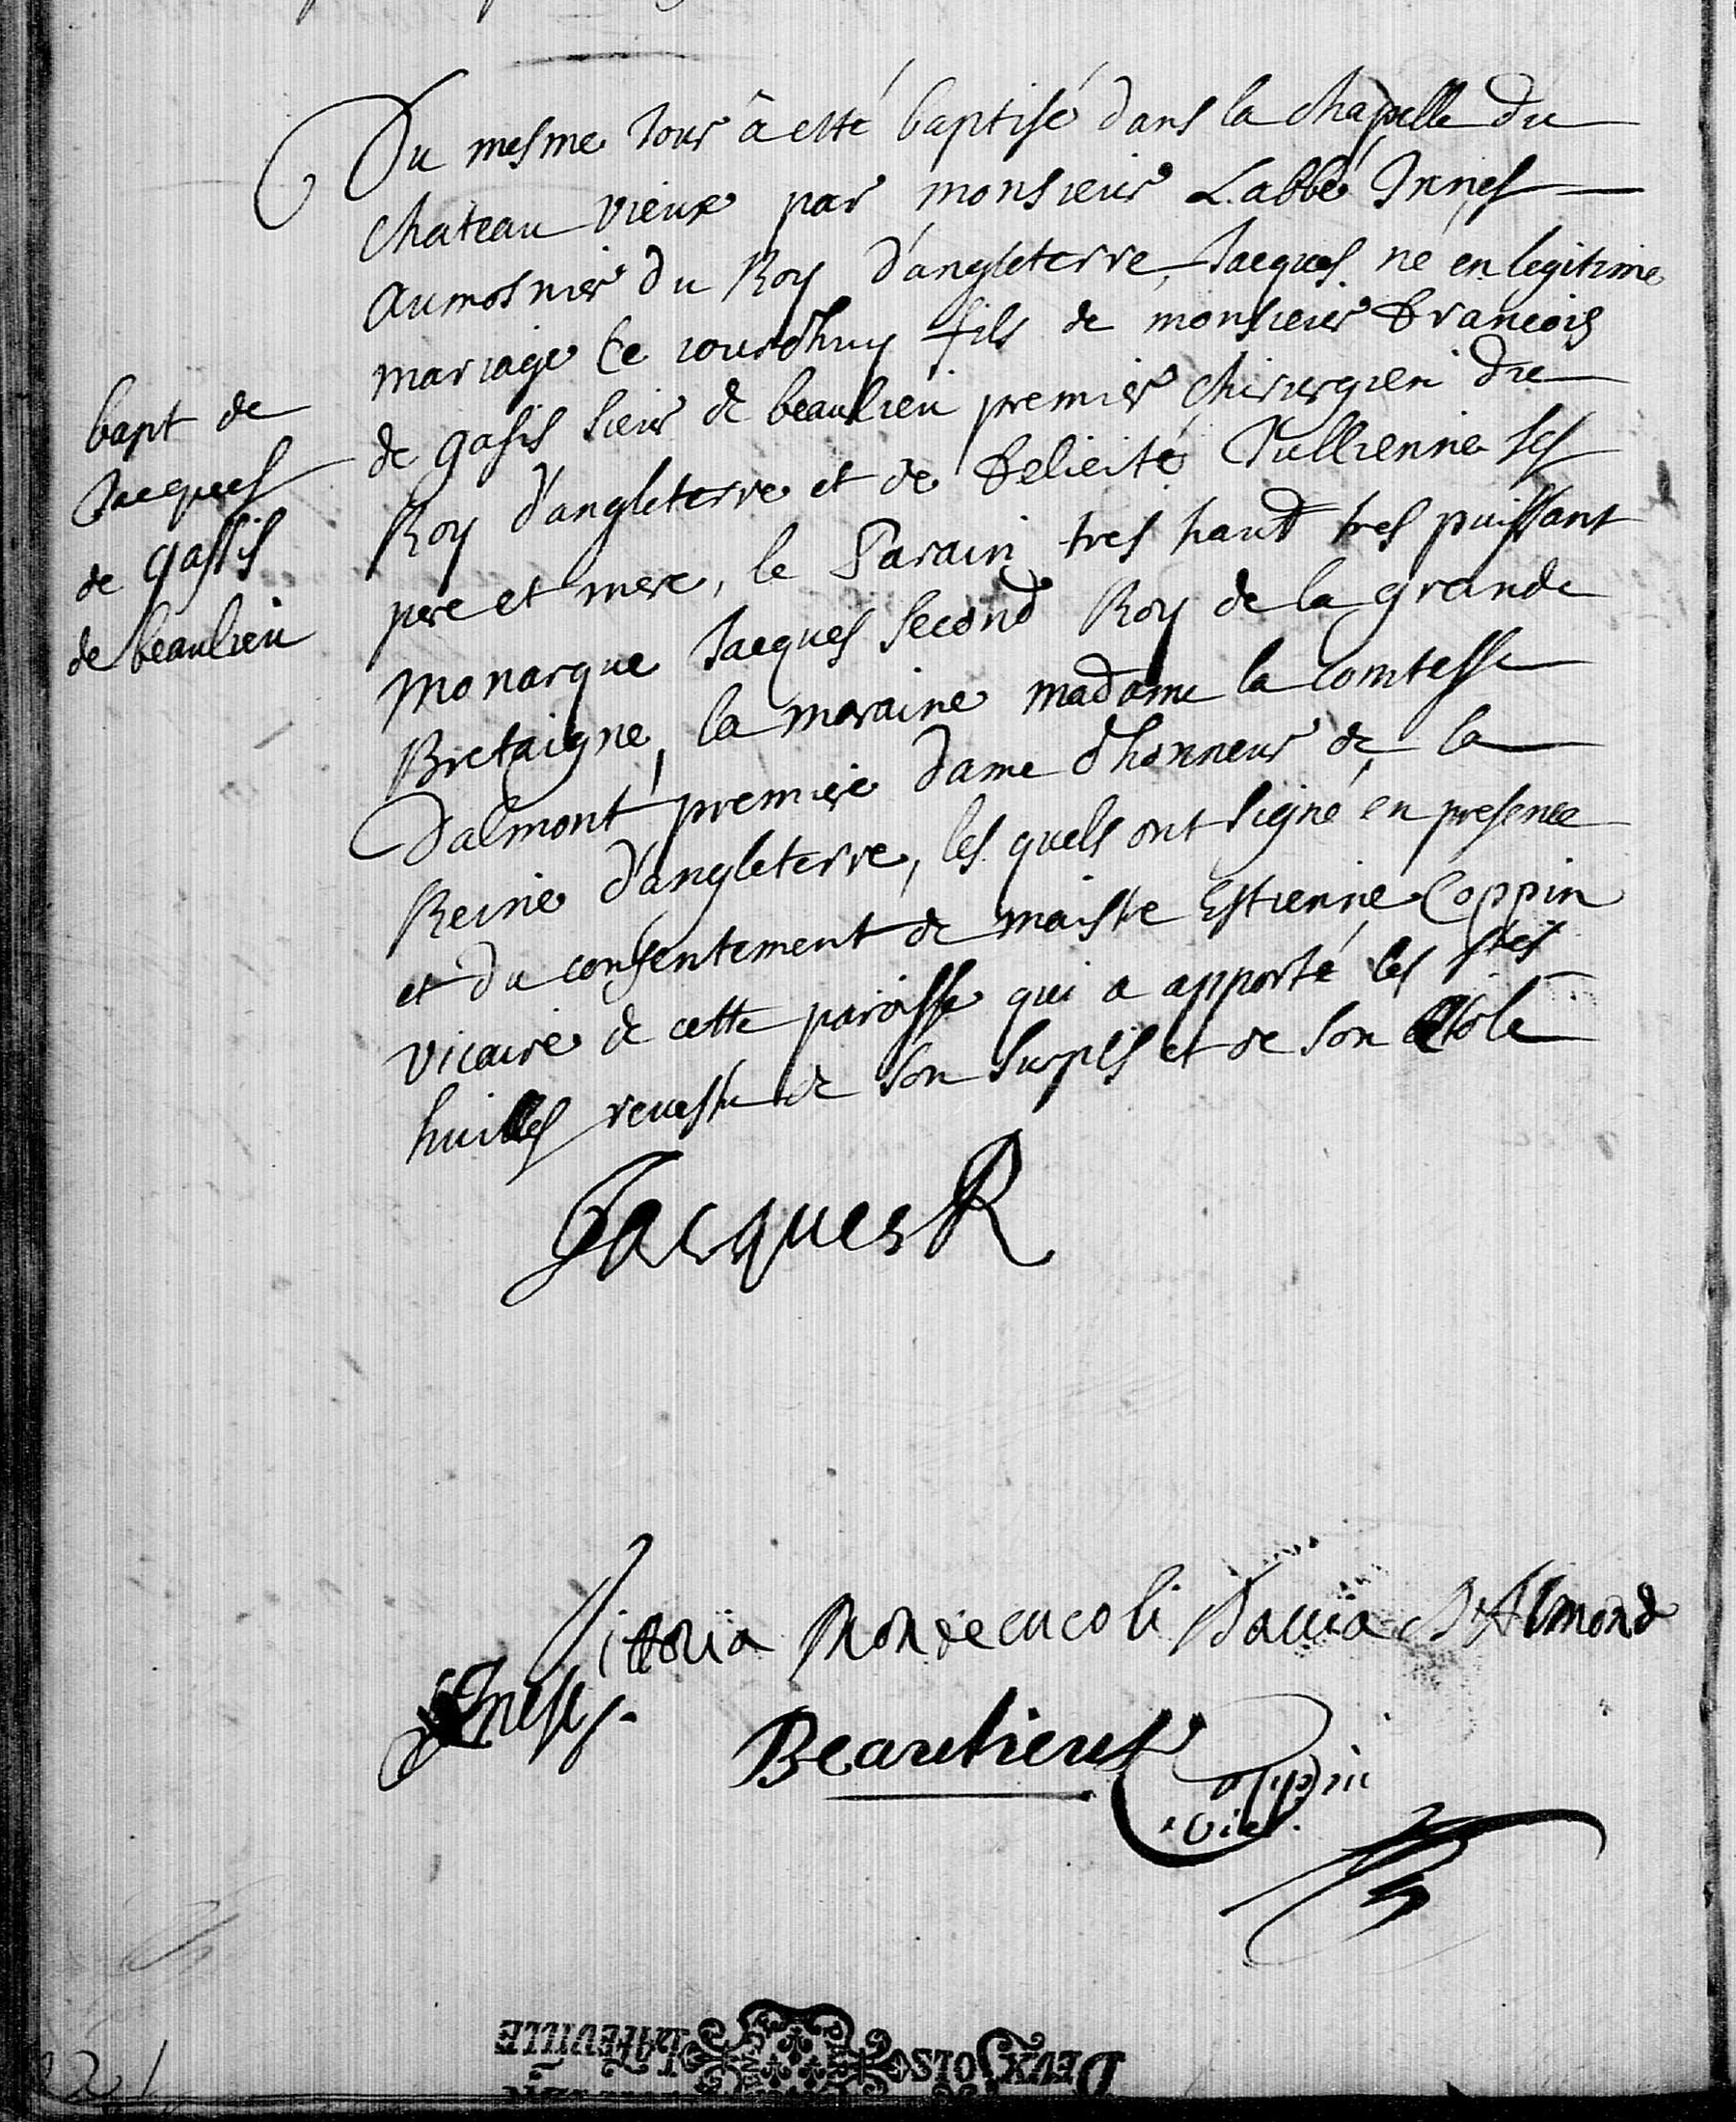 Du mesme Jour â esté baptisé dans la chapelle du
chateau vieux par monsieur L'abbé Innes
aumosnier du Roy d'angleterre, Jacques né en legitime
mariage ce jourdhuy fils de monsieur Francois
de gasis sieur de beaulieu premier chirurgien du
Roy d'angleterre et de Felicité Jullienne ses
pere et mere, le Parain tres haut tres puissant
monarque Jacques second Roy de la grande
Bretaigne, la maraine madame la comtesse
Dalmont premiere dame d'honneur de la
Reine d'angleterre, les quels ont signé en presence
et du consentement de maistre Estienne Coppin
vicaire de cette paroisse qui a apporté les stes
huilles revestu de son surplis et de son estole
bapt de
Jacques
de gassis
de beaulieu
Jacques R
Vittoria Montecucoli Davia D'Almond
Inesse
Beaulieu
Coppin
vic.
DEUX SOLS
LA FEUILLE
221